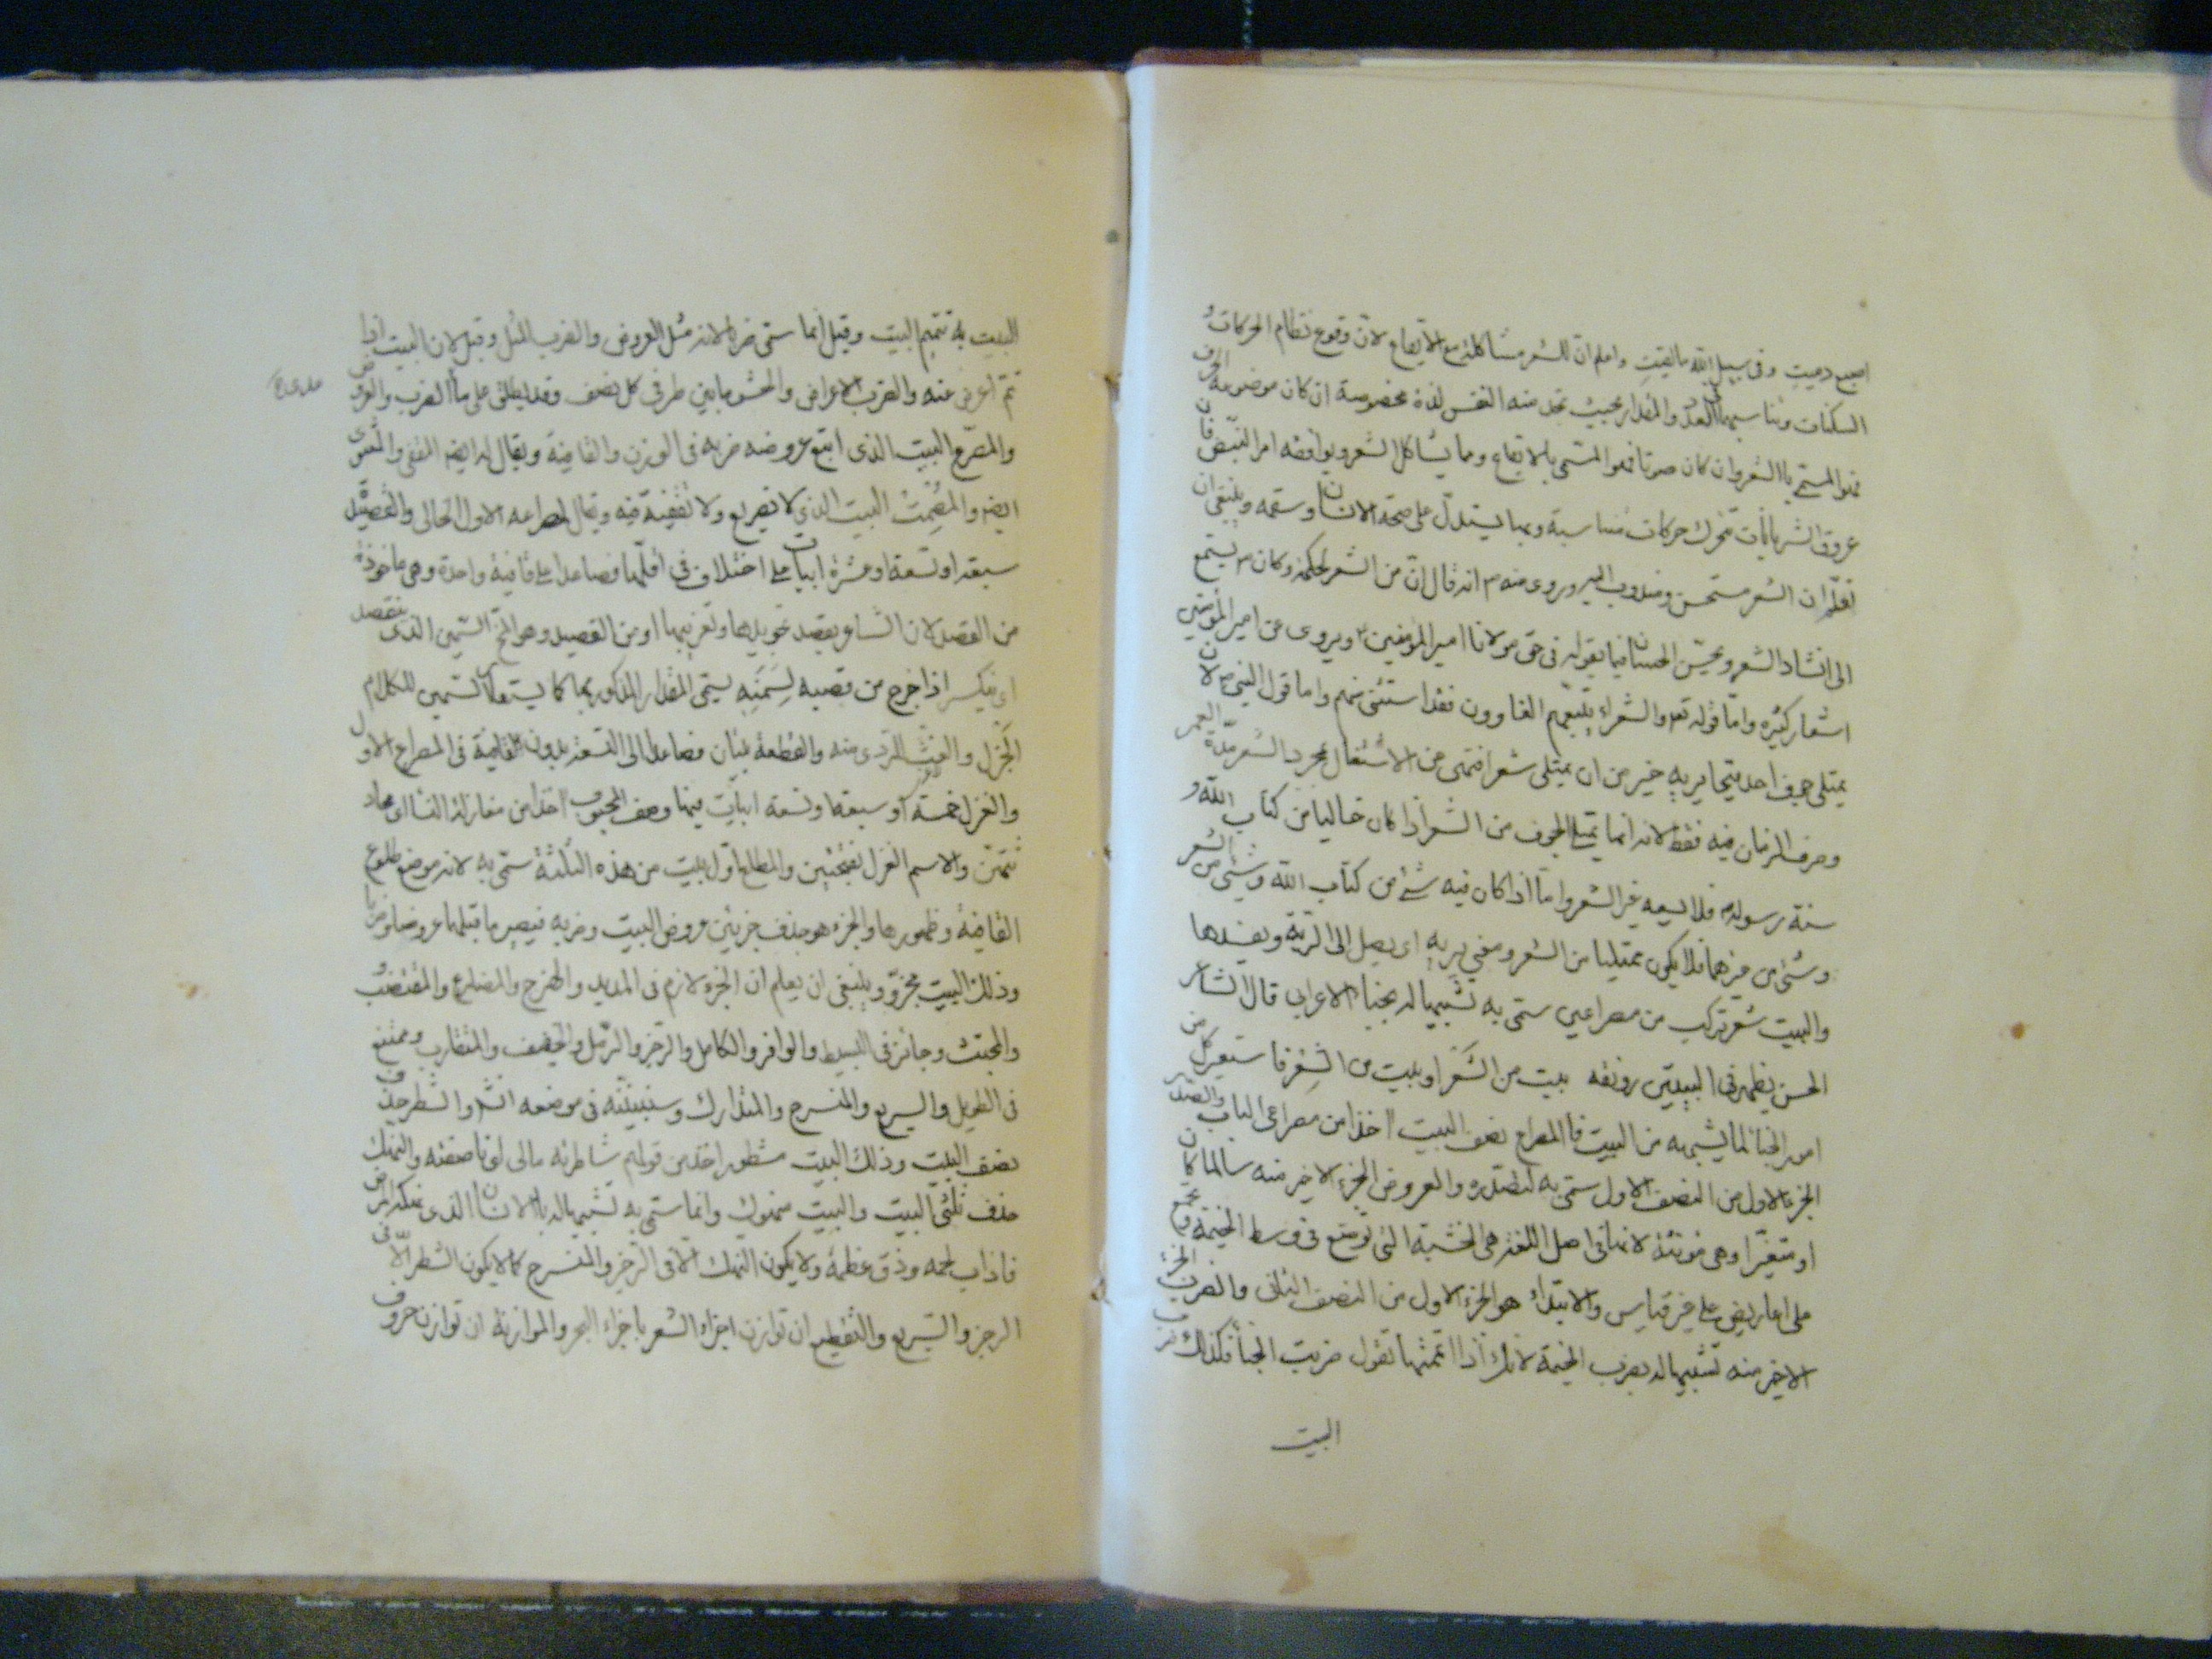 اصبع دميت وفى سبيل الله مالقيت واعلم ان للشعر مشاكلة مع الايقاع لان وقوع نظام الحركات و
السكنات وتناسبهما فى العدد والمقدار بحيث تجد منه النفس لذة مخصوصة ان كان موضوعه الحرف
فهو المسمى بالشعر وان كان صوتا فهو المسمى بالايقاع ومما يشاكل الشعر ويوافقه امر النبض فان
عروق الشريانات تتحرك حركات متناسبة وبها يستدل على صحة الانسان وسقمه وينبغى ان
تعلم ان الشعر مستحسن ومندوب اليه وروى عنه م انه قال ان من الشعر لحكمة وكان م يستمع
الى انشاد الشعر ويحسن الحسان فيما يقوله فى حق مولانا امير المؤمنين ويروى عن امير المؤمنين
اشعار كثيرة واما قوله تعه والشعراء يتبعهم الغاوون فقد استثنى منهم واما قول النبى م لان
يمتلى جوف احد قيحا يريه خير من ان يمتلى شعرا فنهى عن الاشتغال بمجرد الشعر مدة العمر
وصرف الزمان فيه فقط لانه انما يمتلى الجوف من الشعر اذا كان خاليا من كتاب الله و
سنة رسوله م فلا يسعه غير الشعر واما اذا كان فيه شئ من كتاب الله وشئ من الشعر
وشئ من غيرهما فلا يكون ممتليا من الشعر ومعنى يريه اى يصل الى الرية ويفسدها
والبيت شعر تركب من مصراعين سمى به تشبيها له بخباء الاعراب قال الشاعر
الحسن يظهر فى البيتين رونقه بيت من الشعر او بيت من الشعر فاستعير كل من
امور الخباء لما يشبهه من البيت فالمصراع نصف البيت اخذا من مصراعى الباب والصدر
الجزء الاول من النصف الاول سمى به لتصدره والعروض الجزء الاخير منه سالما كان
او متغيرا وهى مونثة لانها فى اصل اللغة هى الخشبة التى توضع فى وسط الخيمة وتجمع
على اعاريض على غير قياس والابتداء هو الجزء الاول من النصف الثانى والضرب الجزء
الاخير منه تشبيها له بضرب الخيمة لانك اذا اتممتها تقول ضربت الخباء فكذلك ضرب
البيت
البيت به تتميم البيت وقيل انما سمى ضربا لانه مثل العروض والضرب المثل وقيل لان البيت اذا
تم اعرض عنه والضرب الاعراض والحشو ما بين طرفى كل نصف وقد يطلق على ما الضرب والعروض
والمصرع البيت الذى اتبع عروضه ضربه فى الوزن والقافية ويقال له ايضه المقفى والمستوى
ايضه والمصمت البيت الذى لا تصريع ولا تقفية فيه ويقال لمصراعه الاول الخالى والقصيدة
سبعة او تسعة او عشرة ابيات على اختلاف فى اقلها فصاعدا على قافية واحدة وهى ماخوذة
من القصد لان الشاعر يقصد تجويدها وتعريبها او من القصيد وهو المخ السمين الذى يتقصد
اى يتكسر اذا خرج من قصبه لسمنه يسمى المقدار المذكور بها كما يستعار السمين للكلام
الجزل والغث للردى منه والقطعة بيتان فصاعدا الى التسعة بدون القافية فى المصراع الاول
والغزل خمسة او سبعة او تسعة ابيات فيها وصف المحبوب اخذا من مغازلة النساء اى محاد
ثتهن والاسم الغزل بفتحتين والمطلع اول بيت من هذه الثلثة سمى به لانه موضع طلوع
القافية وظهورها والجزء هو حذف جزئين عروض البيت وضربه فيصير ما قبلهما عروضا وضربا
وذلك البيت مجزو وينبغى ان يعلم ان الجزء لازم فى المديد والهزج والمضارع والمقتضب و
والمجتث وجائز فى البسيط والوافر والكامل والرجز والرمل والخفيف والمتقارب وممتنع
فى الطويل والسريع والمنسرح والمتدارك وسنبينه فى موضعه انشه والشطر حذف
نصف البيت وذلك البيت مشطور اخذ من قولهم شاطرته مالى اى ناصفته والنهك
حذف ثلثى البيت والبيت منهوك وانما سمى به تشبيها له بالانسان الذى نهكه المرض
فاذاب لحمه ودق عظمه ولا يكون النهك الا فى الرجز والمنسرح كما لا يكون الشطر الا فى
الرجز والسريع والتقطيع ان توازن اجزاء الشعر باجزاء البحر والموازنة ان توازن حروف